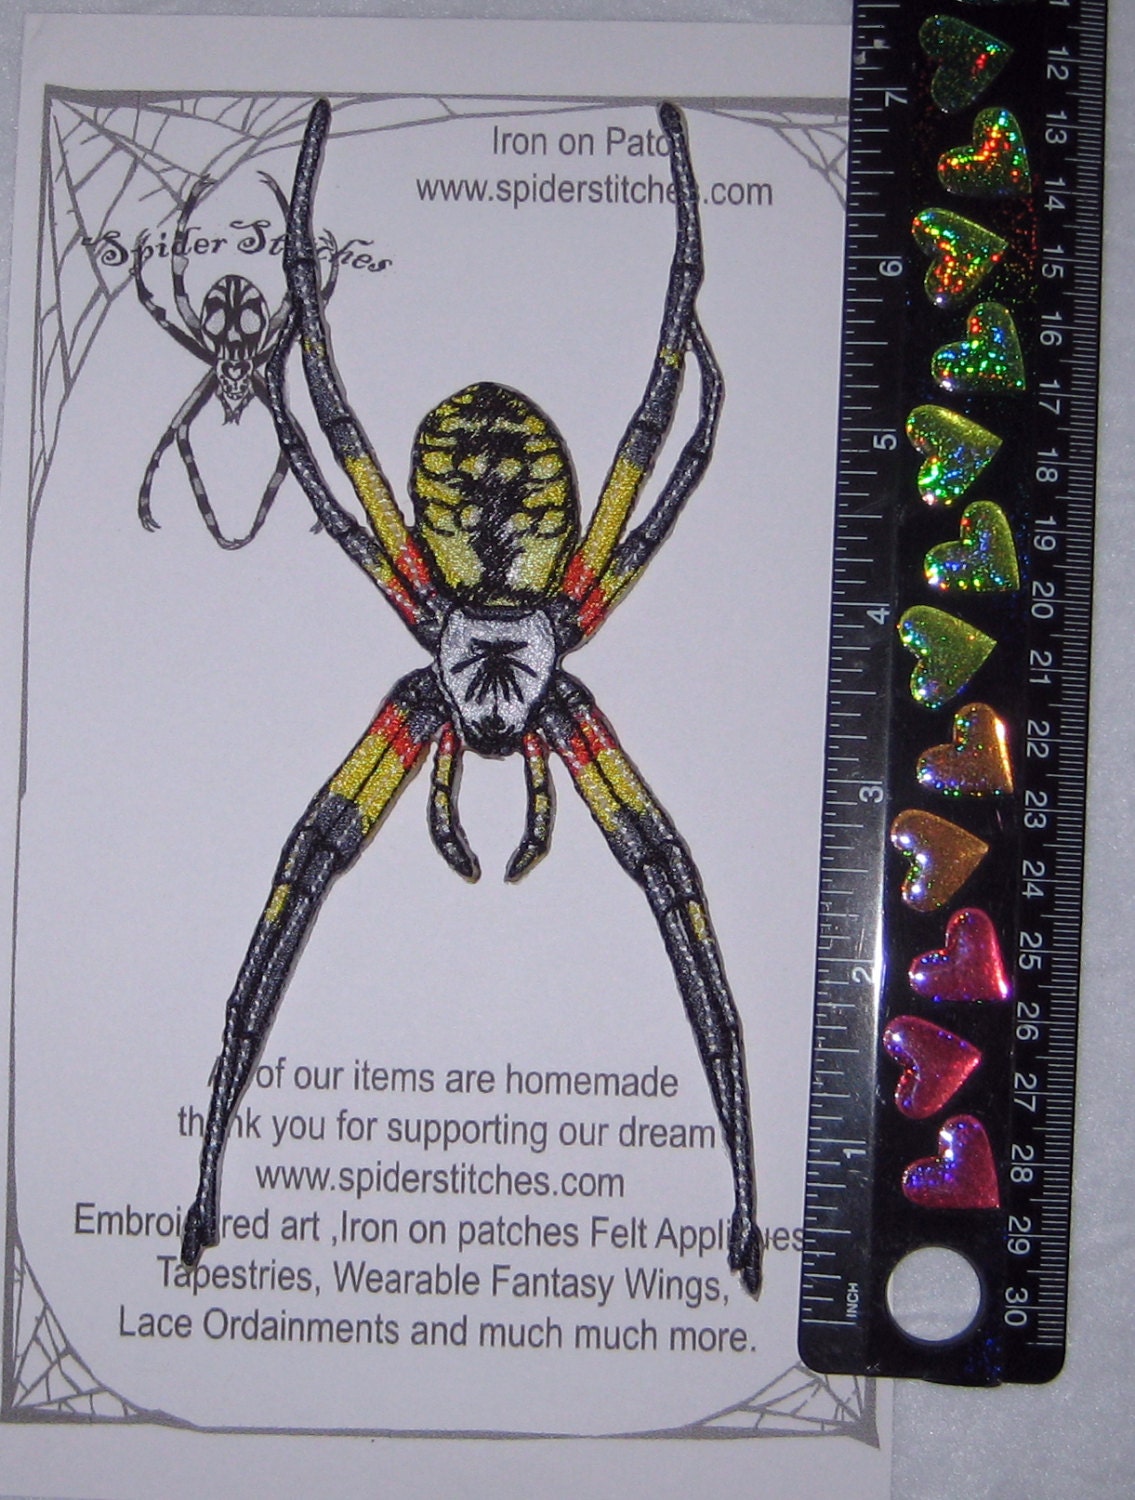 Iron on Patc
www.spiderstitches.com
Spider Stitches
of our items are homemade
thank you for supporting our dream
www.spiderstitches.com
Embroidered art ,Iron on patches Felt Appliques
Tapestries, Wearable Fantasy Wings,
Lace Ordainments and much much more.
7
6
5
4
3
2
1
INCH
12
13
14
15
16
17
18
19
20
21
22
23
24
25
26
27
28
29
30